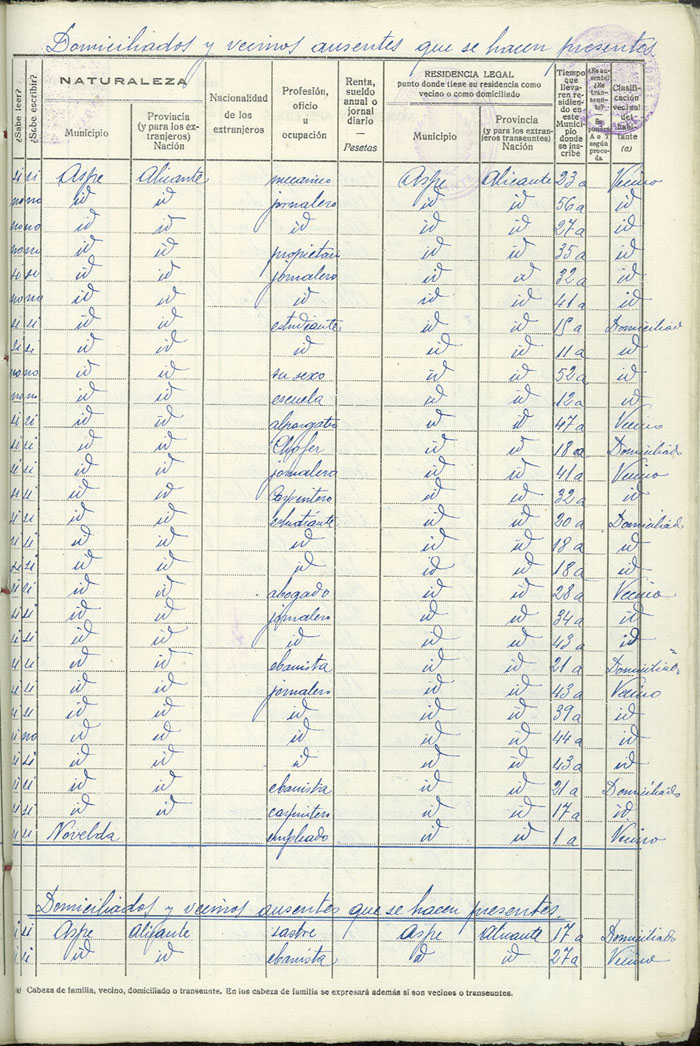 Domiciliados y vecinos ausentes que se hacen presentes
¿Sabe leer?
¿Sabe escribir?
NATURALEZA
Municipio
Provincia
(y para los ex-
tranjeros)
Nación
Nacionalidad
de los
extranjeros
Profesión,
oficio
u
ocupación
Renta,
sueldo
anual o
jornal
diario
—
Pesetas
RESIDENCIA LEGAL
punto donde tiene su residencia como
vecino o como domiciliado
Municipio
Provincia
(y para los extran-
jeros transeuntes)
Nación
Tiempo
que lleva-
ren resi-
diendo
en este
Munici-
pio
donde se
inscribe
Clasifi-
cación
vecinal
del
habi-
tante
(a)
si si Aspe Alicante mecanico Aspe Alicante 23 a Vecino
no no id id jornalero id id 56 a id
no no id id id id id 27 a id
no no id id propietari id id 35 a id
si si id id jornalero id id 32 a id
no no id id id id id 41 a id
si si id id estudiante id id 15 a Domiciliad
si si id id id id id 11 a id
no no id id su sexo id id 52 a id
no no id id escuela id id 12 a id
si si id id alpargatr id id 47 a Vecino
si si id id Chofer id id 18 a Domiciliado
si si id id jornalero id id 41 a Vecino
si si id id Carpintero id id 32 a id
si si id id estudiante id id 20 a Domiciliad
si si id id id id id 18 a id
si si id id id id id 18 a id
si si id id abogado id id 28 a Vecino
si si id id jornalero id id 34 a id
si si id id id id id 43 a id
si si id id ebanista id id 21 a Domiciliado
si si id id jornalero id id 43 a Vecino
si si id id id id id 39 a id
si no id id id id id 44 a id
si si id id id id id 43 a id
si si id id ebanista id id 21 a Domiciliado
si si id id carpintero id id 17 a id
si si Novelda empleado id id 1 a Vecino
Domiciliados y vecinos ausentes que se hacen presentes
si si Aspe Alicante sastre Aspe Alicante 17 a Domiciliado
si si id id ebanista id id 27 a Vecino
(a) Cabeza de familia, vecino, domiciliado o transeunte. En los cabeza de familia se expresará además si son vecinos o transeuntes.